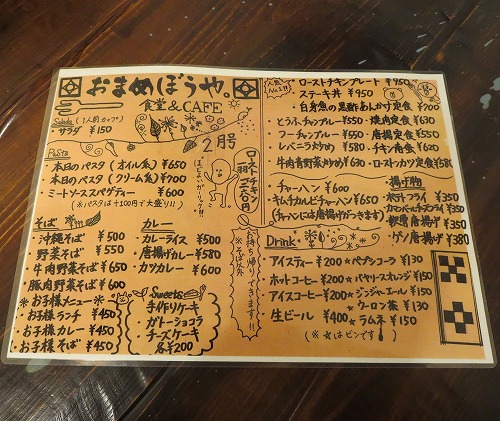 おまめぼうや。
食堂&CAFE
2号
Salada (1人前カップ)
・サラダ ¥150
Pasta
・本日のパスタ (オイル系) ¥650
・本日のパスタ (クリーム系) ¥700
・ミートソーススパゲティー ¥600
(※パスタは+100円で大盛り!!)
そば
・沖縄そば ¥500
・野菜そば ¥550
・牛肉野菜そば ¥650
・豚肉野菜そば ¥600
※お子様メニュー※
・お子様ランチ ¥450
・お子様カレー ¥450
・お子様そば ¥450
カレー
・カレーライス ¥500
・唐揚カレー ¥580
・カツカレー ¥600
Sweets
手作りケーキ
・ガトーショコラ
・チーズケーキ
各¥200
ローストチキン
1羽 1200円
お持ち帰りできます!!
※そば以外
人気No.1!!
・ローストチキンプレート ¥950
・ステーキ丼 ¥950
・白身魚の黒酢あんかけ定食 ¥700
・とうふチャンプルー ¥550
・焼肉定食 ¥630
・フーチャンプルー ¥550
・唐揚定食 ¥580
・レバニラ炒め ¥630
・チキン南蛮 ¥620
・牛肉青野菜炒め ¥630
・ローストンカツ定食 ¥580
・チャーハン ¥600
・キムチカルビチャーハン ¥650
(チャーハンには唐揚げがつきます)
揚げ物
・ポテトフライ ¥350
・カマンベールチーズフライ ¥350
・軟骨唐揚げ ¥350
・ゲソ唐揚げ ¥380
Drink
・アイスティー ¥200
★ペプシコーラ ¥130
・ホットコーヒー ¥200
★バヤリースオレンジ ¥150
・アイスコーヒー ¥200
★ジンジャーエール ¥150
・生ビール ¥400
★ウーロン茶 ¥130
★ラムネ ¥150
(※★はビンです)